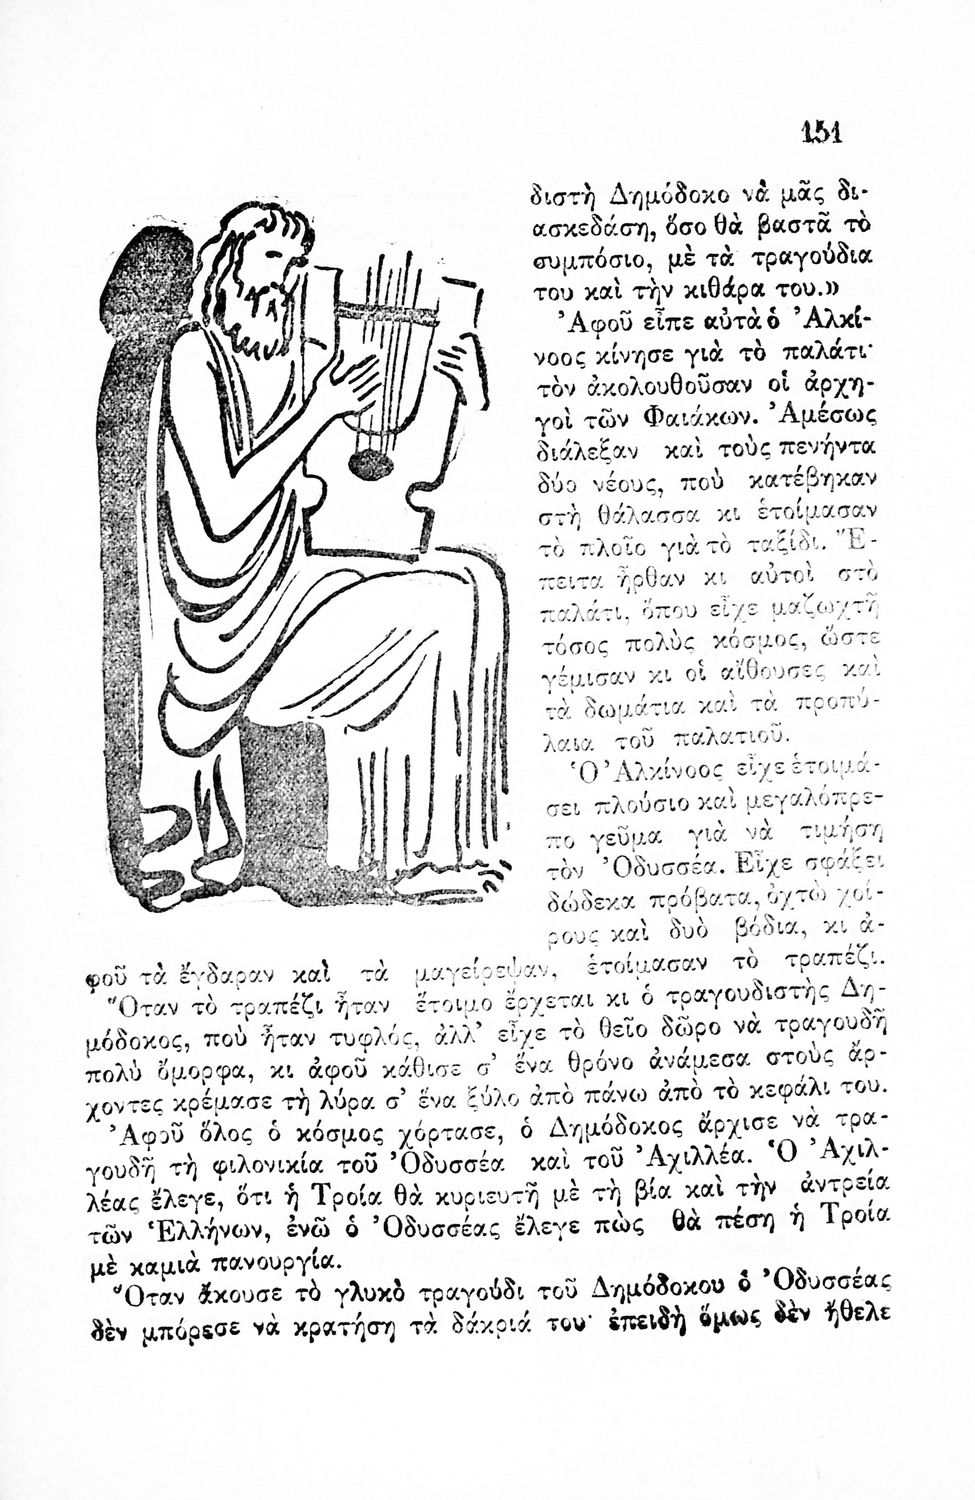 151
διστὴ Δημόδοκο νὰ μᾶς δι-
ασκεδάση, ὅσο θὰ βαστᾶ τὸ
συμπόσιο, μὲ τὰ τραγούδια
του καὶ τὴν κιθάρα του.»
Ἀφοῦ εἶπε αὐτὰ ὁ Ἀλκί-
νοος κίνησε γιὰ τὸ παλάτι·
τὸν ἀκολουθοῦσαν οἱ ἀρχη-
γοὶ τῶν Φαιάκων. Ἀμέσως
διάλεξαν καὶ τοὺς πενήντα
δύο νέους, ποὺ κατέβηκαν
στὴ θάλασσα κι ἑτοίμασαν
τὸ πλοῖο γιὰ τὸ ταξίδι. Ἔ-
πειτα ἦρθαν κι αὐτοὶ στὸ
παλάτι, ὅπου εἶχε μαζωχτῆ
τόσος πολὺς κόσμος, ὥστε
γέμισαν κι οἱ αἴθουσες καὶ
τὰ δωμάτια καὶ τὰ προπύ-
λαια τοῦ παλατιοῦ.
Ὁ Ἀλκίνοος εἶχε ἑτοιμά-
σει πλούσιο καὶ μεγαλόπρε-
πο γεῦμα γιὰ νὰ τιμήση
τὸν Ὀδυσσέα. Εἶχε σφάξει
δώδεκα πρόβατα, ὀχτὼ χοί-
ρους καὶ δυὸ βόδια, κι ἀ-
φοῦ τὰ ἔγδαραν καὶ τὰ μαγείρεψαν, ἑτοίμασαν τὸ τραπέζι.
Ὅταν τὸ τραπέζι ἦταν ἕτοιμο ἔρχεται κι ὁ τραγουδιστὴς Δη-
μόδοκος, ποὺ ἦταν τυφλός, ἀλλ' εἶχε τὸ θεῖο δῶρο νὰ τραγουδῆ
πολὺ ὄμορφα, κι ἀφοῦ κάθισε σ' ἕνα θρόνο ἀνάμεσα στοὺς ἄρ-
χοντες κρέμασε τὴ λύρα σ' ἕνα ξύλο ἀπὸ πάνω ἀπὸ τὸ κεφάλι του.
Ἀφοῦ ὅλος ὁ κόσμος χόρτασε, ὁ Δημόδοκος ἄρχισε νὰ τρα-
γουδῆ τὴ φιλονικία τοῦ Ὀδυσσέα καὶ τοῦ Ἀχιλλέα. Ὁ Ἀχιλ-
λέας ἔλεγε, ὅτι ἡ Τροία θὰ κυριευτῆ μὲ τὴ βία καὶ τὴν ἀντρεία
τῶν Ἑλλήνων, ἐνῶ ὁ Ὀδυσσέας ἔλεγε πὼς θὰ πέση ἡ Τροία
μὲ καμιὰ πανουργία.
Ὅταν ἄκουσε τὸ γλυκὸ τραγούδι τοῦ Δημόδοκου ὁ Ὀδυσσέας
δὲν μπόρεσε νὰ κρατήση τὰ δάκριά του· ἐπειδὴ ὅμως δὲν ἤθελε